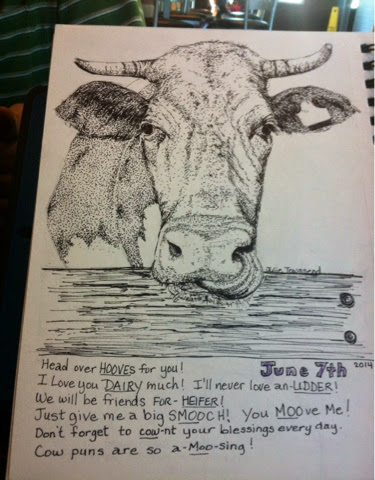 Julie Townsend
June 7th 2014
Head over HOOVES for you!
I Love you DAIRY much! I'll never love an-UDDER!
We will be friends FOR-HEIFER!
Just give me a big SMOOCH! You MOOve Me!
Don't forget to cow-nt your blessings every day.
Cow puns are so a-Moo-sing!